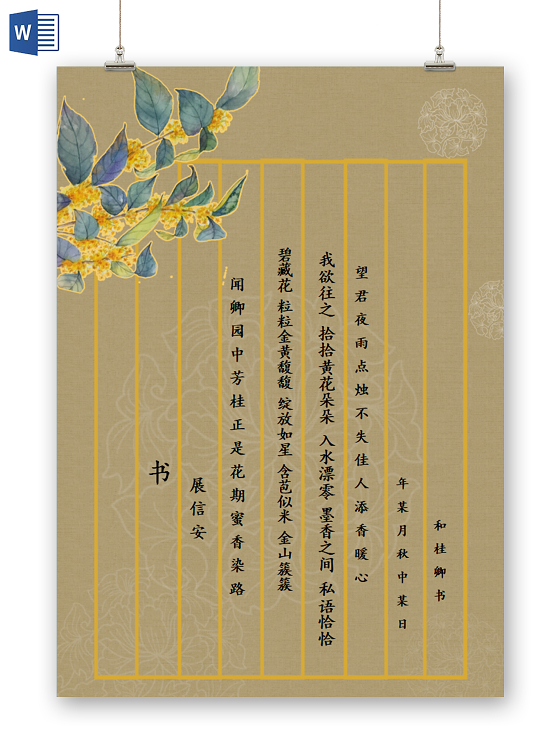 W
书
展信安
闻卿园中芳桂正是花期蜜香染路
碧藏花 粒粒金黄馥馥 绽放如星 含苞似米 金山簇簇
我欲往之 拾拾黄花朵朵 入水漂零 墨香之间 私语恰恰
望君夜雨点烛不失佳人添香暖心
年某月秋中某日
和桂卿书